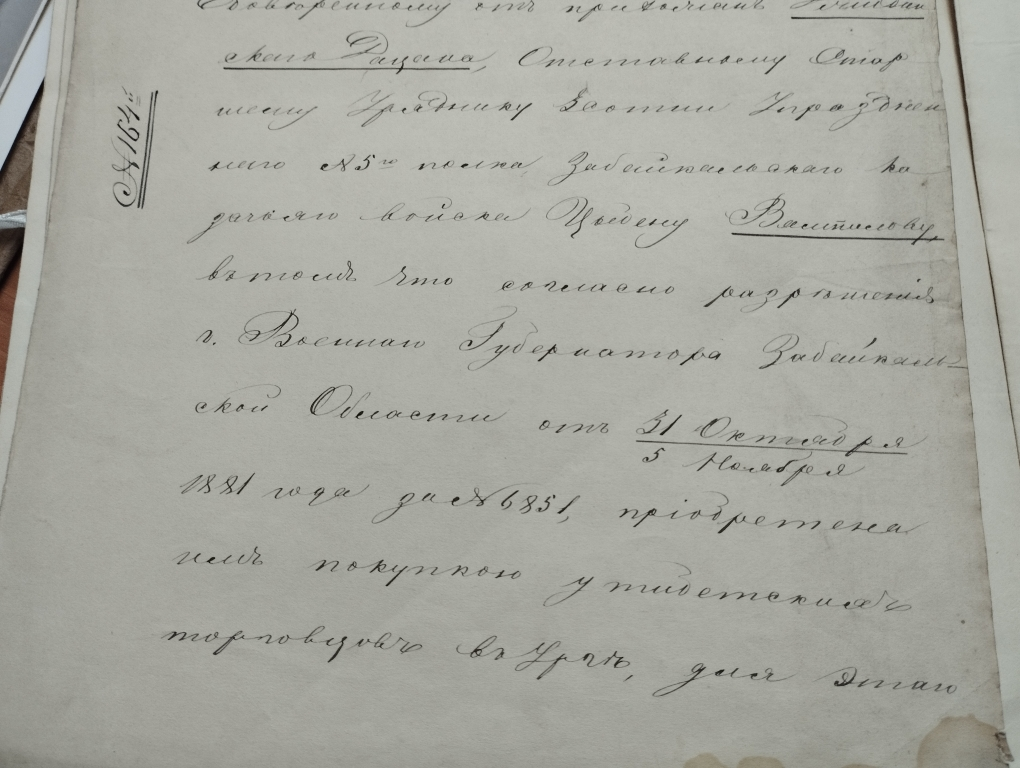 довѣренному отъ прихожанъ
скаго Дацана, Отставному Стар
шему Уряднику 3 сотни Упразднен
наго № 5го полка Забайкальскаго ка
зачьяго войска Цыдену Вампилову,
въ томъ что согласно разрѣшенія
г. Военнаго Губернатора Забайкаль-
ской Области отъ 31 Октября
5 Ноября
1881 года за № 6851, пріобретена
имъ покупкою у тибетскихъ
торговцовъ въ Ургѣ, для этаго
№ 164й